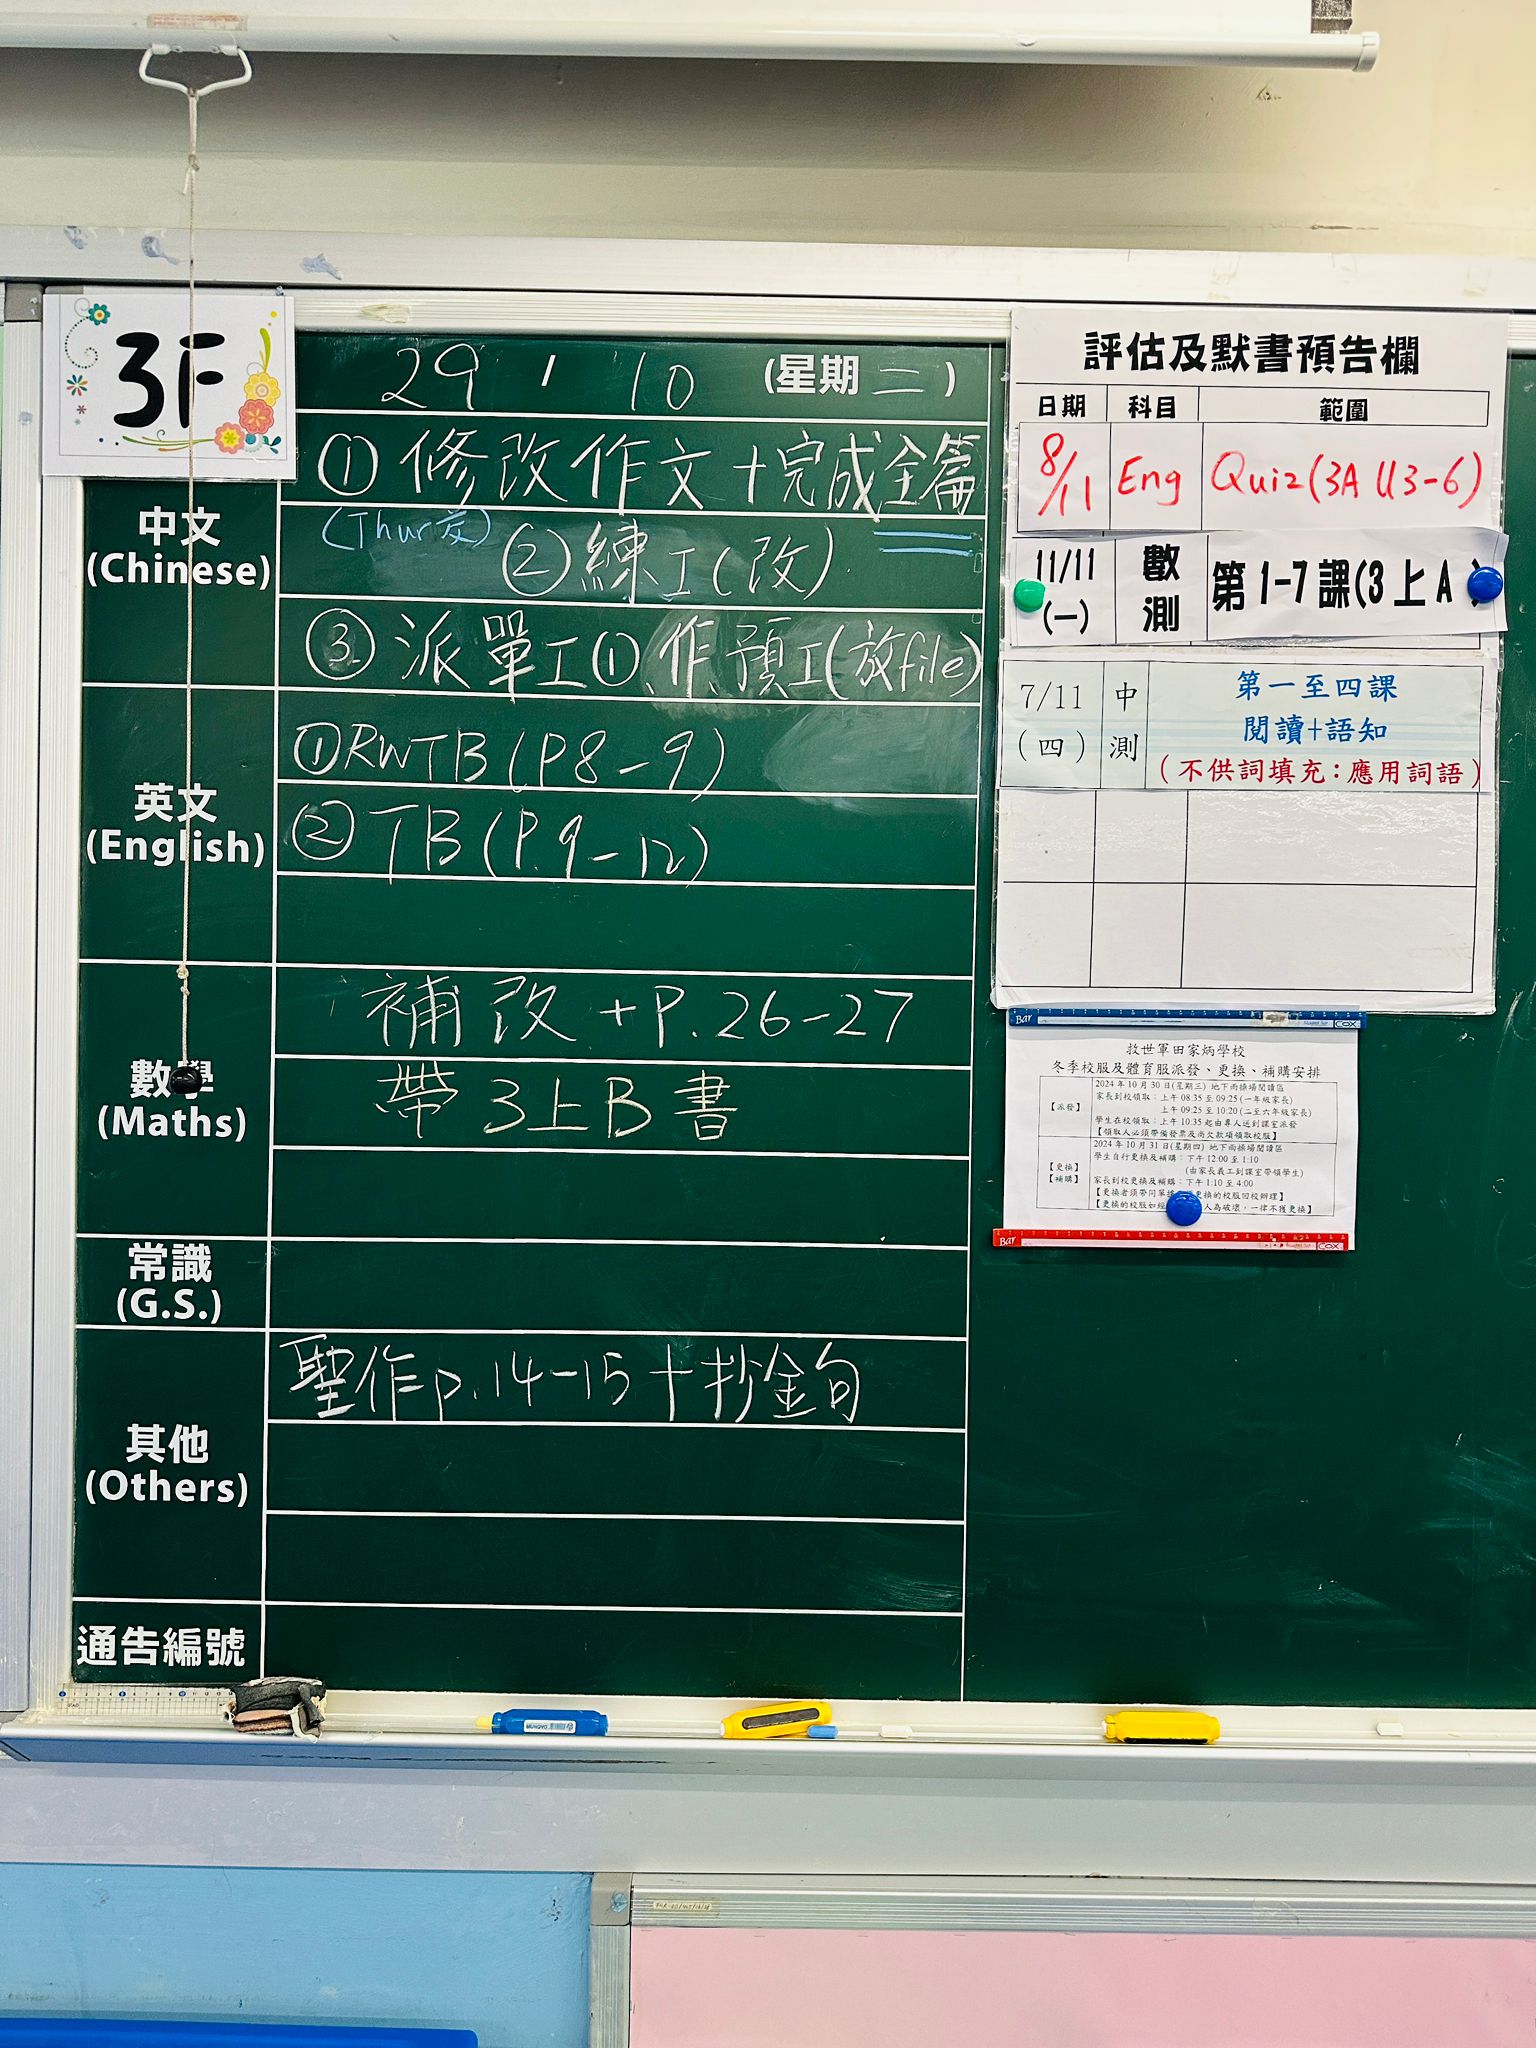 3F
29 / 10 (星期二)
中文
(Chinese)
① 修改作文+完成全篇
(Thur交) ②練工(改)
③派單工①、作預工(放file)
英文
(English)
①RWTB(P8-9)
②TB(P.9-12)
數學
(Maths)
補改+P.26-27
帶3上B書
常識
(G.S.)
其他
(Others)
聖作p.14-15+抄金句
通告編號
評估及默書預告欄
日期 科目 範圍
8/11 Eng Quiz(3A U3-6)
11/11 (一) 數測 第1-7課(3上A)
7/11 (四) 中測 第一至四課
閱讀+語知
(不供詞填充:應用詞語)
Bar COX
救世軍田家炳學校
冬季校服及體育服派發、更換、補購安排
【派發】
2024年10月30日(星期三) 地下雨操場閱讀區
家長到校領取:上午08:35至09:25(一年級家長)
上午09:25至10:20(二至六年級家長)
學生在校領取:上午10:35起由專人送到課室派發
【領取人必須帶備發票及尚欠款項領取校服】
【更換】
【補購】
2024年10月31日(星期四) 地下雨操場閱讀區
學生自行更換及補購:下午12:00至1:10
(由家長義工到課室帶領學生)
家長到校更換及補購:下午1:10至4:00
【更換者須帶同單據 更換的校服回校辦理】
【更換的校服如經 人為破壞,一律不獲更換】
Bar COX